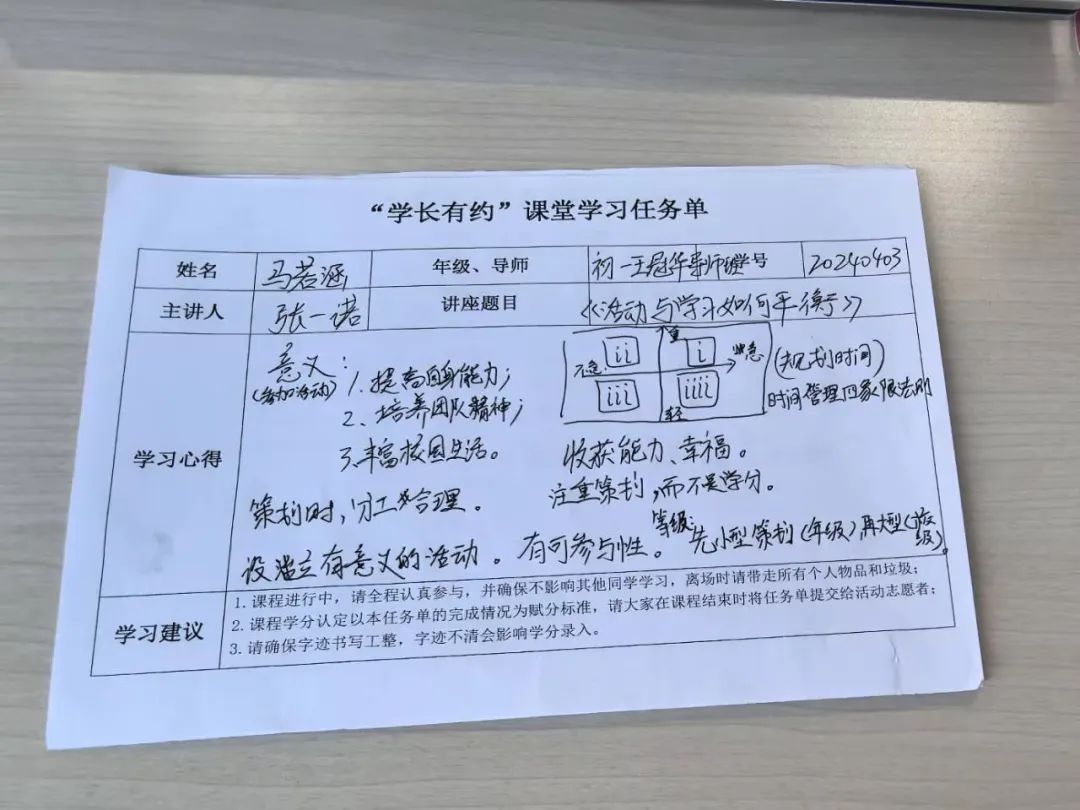 “学长有约”课堂学习任务单
姓名 马若涵 年级、导师 初一王冠华导师 学号 20240403
主讲人 张一诺 讲座题目 《活动与学习如何平衡》
学习心得
意义：
(参加活动) 1. 提高自身能力；
2、培养团队精神；
3、丰富校园生活。
重
ii i 紧急
不急
iii iiii
轻
(规划时间)
时间管理四象限法则
收获能力、幸福。
策划时，分工要合理。 注重策划，而不是学分。
设立有意义的活动。有可参与性。等级：先小型策划(年级)再大型(校级)。
学习建议
1. 课程进行中，请全程认真参与，并确保不影响其他同学学习，离场时请带走所有个人物品和垃圾；
2. 课程学分认定以本任务单的完成情况为赋分标准，请大家在课程结束时将任务单提交给活动志愿者；
3. 请确保字迹书写工整，字迹不清会影响学分录入。